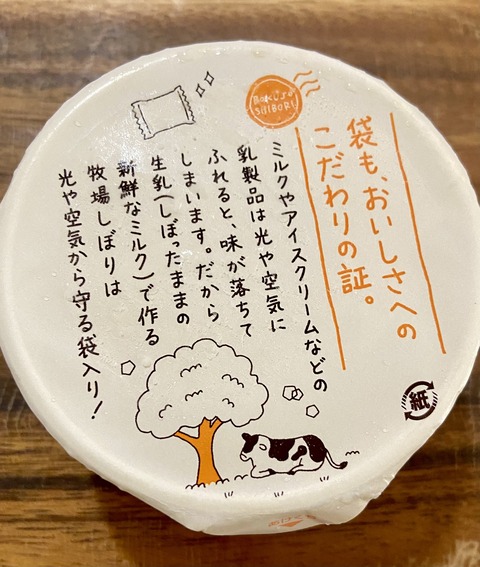 袋も、おいしさへの
こだわりの証。
BOKUJO
SHIBORI
ミルクやアイスクリームなどの
乳製品は光や空気に
ふれると、味が落ちて
しまいます。だから
生乳(しぼったままの
新鮮なミルク)で作る
牧場しぼりは
光や空気から守る袋入り!
紙